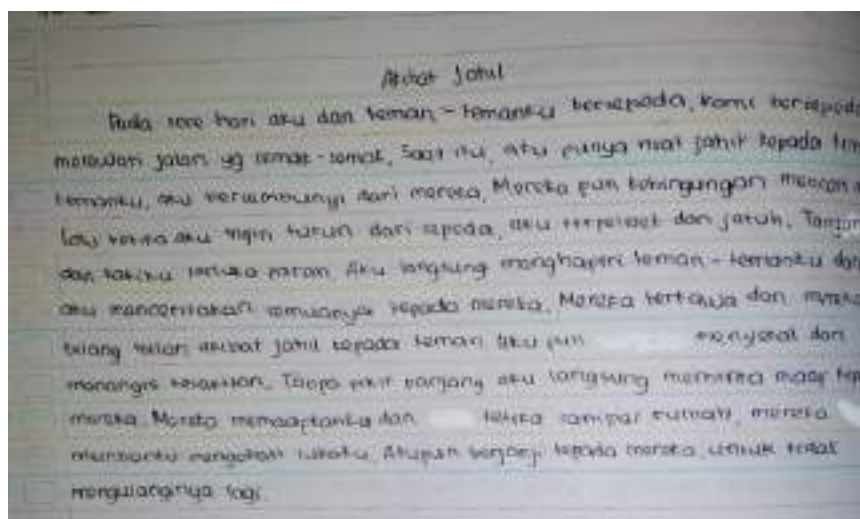 Akibat Jahil
Pada sore hari aku dan teman-temanku bersepada, kami bersepada
melewati jalan yg semak-semak, Saat itu, aku punya niat jahil kepada
temanku, aku bersembunyi dari mereka, Mereka pun kebingungan mencari
lalu ketika aku ingin turun dari sepeda, aku terpeleset dan jatuh. Tangan
dan kakiku terluka parah Aku langsung menghapiri teman-temanku dan
aku menceritakan semuanya kepada mereka. Mereka tertawa dan mereka
bilang akibat jahil kepada teman Aku pun menyesal dan
menangis kesakitan. Tanpa pikir panjang aku langsung meminta maap
mereka. Mereka memaapkanku dan ketika sampai rumah, mereka
membantu mengobati lukaku. Akupun berjanji kepada mereka, untuk tidak
mengulanginya lagi.